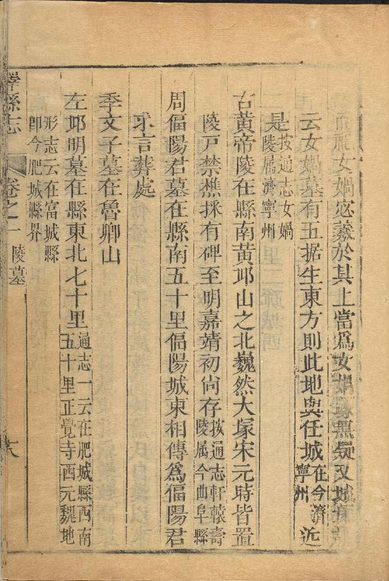 而祀女媧宓羲於其上當爲女媧
云女媧墓有五据生東方則此地與任城在今濟寧州近
是按通志女媧陵属濟寧州
古黄帝陵在縣南黄邱山之北巍然大塚宋元時皆置
陵户禁樵採有碑至明嘉靖初尙存按通志軒轅壽陵属今曲阜縣
周偪陽君墓在縣南五十里偪陽城東相傳爲偪陽君
釆言葬處
季文子墓在魯卿山
左邱明墓在縣東北七十里通志一云在肥城縣西南五十里正覺寺西元魏地
形志云在富城縣卽今肥城縣界
嶧縣志
卷之一
陵墓